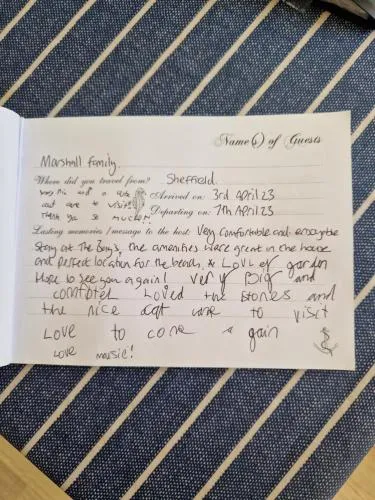 Name(s) of Guests
Marshall Family.
Where did you travel from? Sheffield
Very nic and a cute
cat came to visit!
Thank you so much!!
Arrived on: 3rd April 23
Departing on: 7th April 23
Lasting memories/message to the host: Very comfortable and
Stay at The Bay's, the amenities were great in the house
and perfect location for the beach. & Love of garden
Hope to see you again! very Big and
Loved the stones and
the nice cat to visit
Love to come a gain
Love